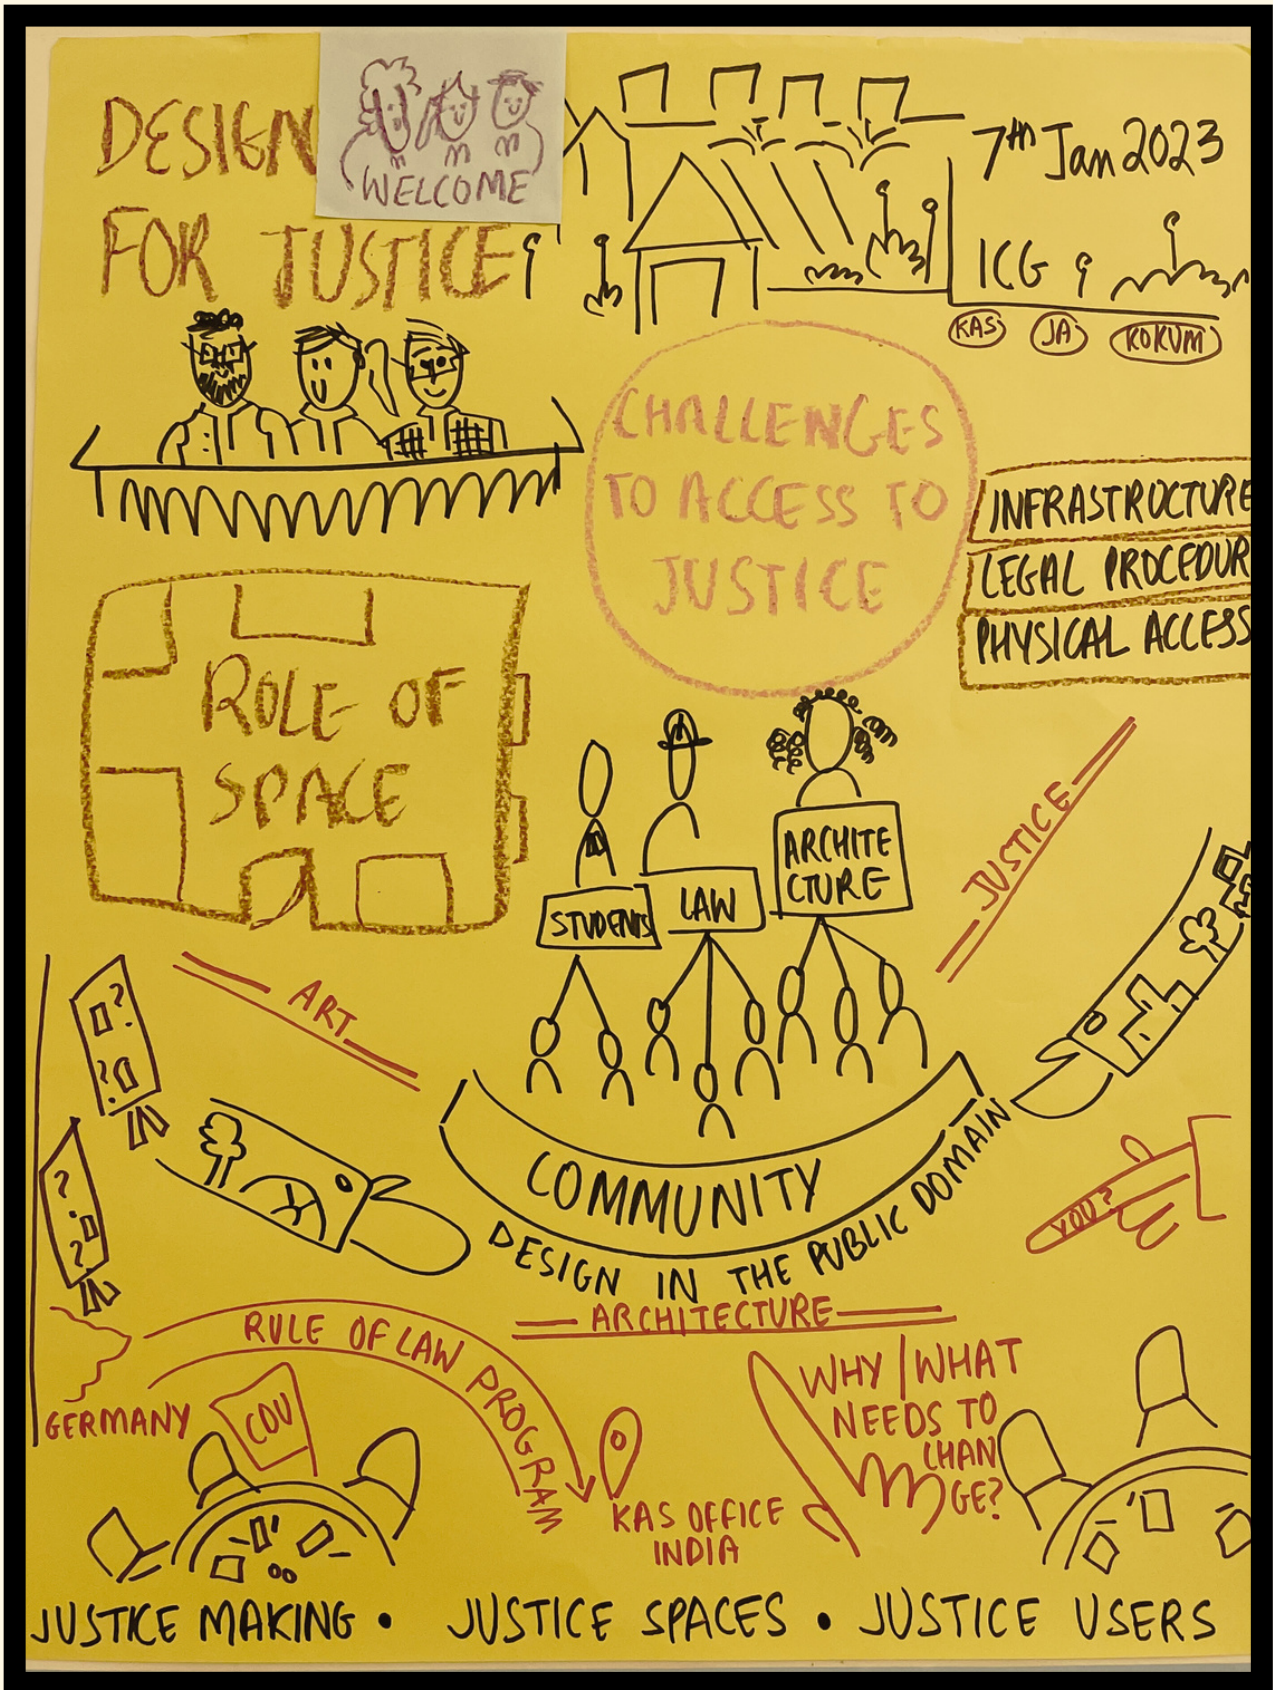 DESIGN
FOR JUSTICE
WELCOME
7th Jan 2023
ICG
KAS JA KOKUM
CHALLENGES
TO ACCESS TO
JUSTICE
INFRASTRUCTURE
LEGAL PROCEDUR
PHYSICAL ACCESS
ROLE OF
SPACE
STUDENTS
LAW
ARCHITE
CTURE
JUSTICE
ART
? ?
? ?
COMMUNITY
DESIGN IN THE PUBLIC DOMAIN
ARCHITECTURE
YOU?
RULE OF LAW PROGRAM
GERMANY
CDU
KAS OFFICE
INDIA
WHY/WHAT
NEEDS TO
CHAN
GE?
JUSTICE MAKING • JUSTICE SPACES • JUSTICE USERS